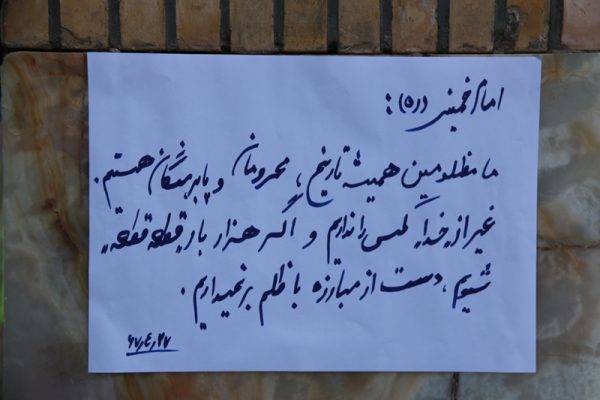 امام خمینی (ره):
ما مظلومین همیشه تاریخ، محرومان و پابرهنگان هستیم.
غیر از خدا کسی را نداریم و اگر هزار بار قطعه قطعه
شویم، دست از مبارزه با ظلم بر نمیداریم.
۶۷٫۴٫۲۷